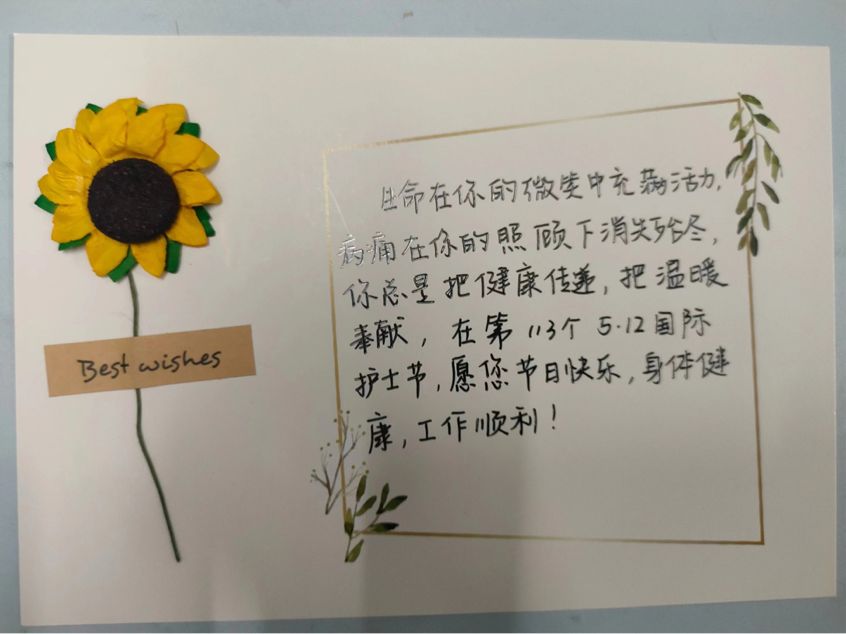 Best wishes
生命在你的微笑中充满活力,
病痛在你的照顾下消失殆尽,
你总是把健康传递,把温暖
奉献,在第113个5·12国际
护士节,愿您节日快乐,身体健
康,工作顺利!